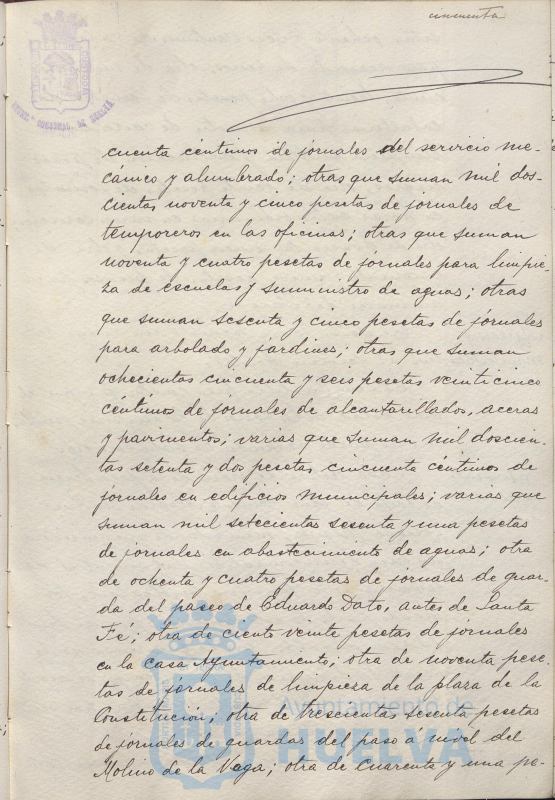 cincuenta
cuenta céntimos de jornales del servicio me-
cánico y alumbrado; otras que suman mil dos-
cientas noventa y cinco pesetas de jornales de
temporeros en las oficinas; otras que suman
noventa y cuatro pesetas de jornales para limpie-
za de escuelas y suministro de aguas; otras
que suman sesenta y cinco pesetas de jornales
para arbolado y jardines; otras que suman
ochecientas cincuenta y seis pesetas veinticinco
céntimos de jornales de alcantarillados, aceras
y pavimentos; varias que suman mil doscien-
tas setenta y dos pesetas cincuenta céntimos de
jornales en edificios municipales; varias que
suman mil setecientas sesenta y una pesetas
de jornales en abastecimiento de aguas; otra
de ochenta y cuatro pesetas de jornales de guar-
da del paseo de Eduardo Dato, antes de Santa
Fé; otra de ciento veinte pesetas de jornales
en la casa Ayuntamiento; otra de noventa pese-
tas de jornales de limpieza de la plaza de la
Constitución; otra de trescientas sesenta pesetas
de jornales de guardas del paso a nivel del
Molino de la Vega; otra de cuarenta y una pe-
Ayuntamiento de
HUELVA